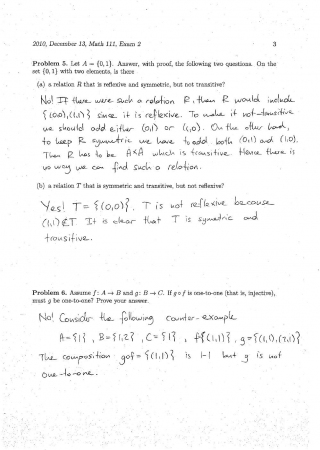 2010, December 13, Math 111, Exam 2 3
Problem 5. Let A = {0, 1}. Answer, with proof, the following two questions. On the
set {0, 1} with two elements, is there
(a) a relation R that is reflexive and symmetric, but not transitive?
No! If there were such a relation R, then R would include
{(0,0),(1,1)} since it is reflexive. To make it not-transitive
we should add either (0,1) or (1,0). On the other hand,
to keep R symmetric we have to add both (0,1) and (1,0).
Then R has to be A×A which is transitive. Hence there is
no way we can find such a relation.
(b) a relation T that is symmetric and transitive, but not reflexive?
Yes! T = {(0,0)}. T is not reflexive because
(1,1)∉T. It is clear that T is symmetric and
transitive.
Problem 6. Assume f: A → B and g: B → C. If g∘f is one-to-one (that is, injective),
must g be one-to-one? Prove your answer.
No! Consider the following counter-example
A={1}, B={1,2}, C={1}, f={(1,1)}, g={(1,1),(2,1)}
The composition g∘f = {(1,1)} is 1-1 but g is not
one-to-one.